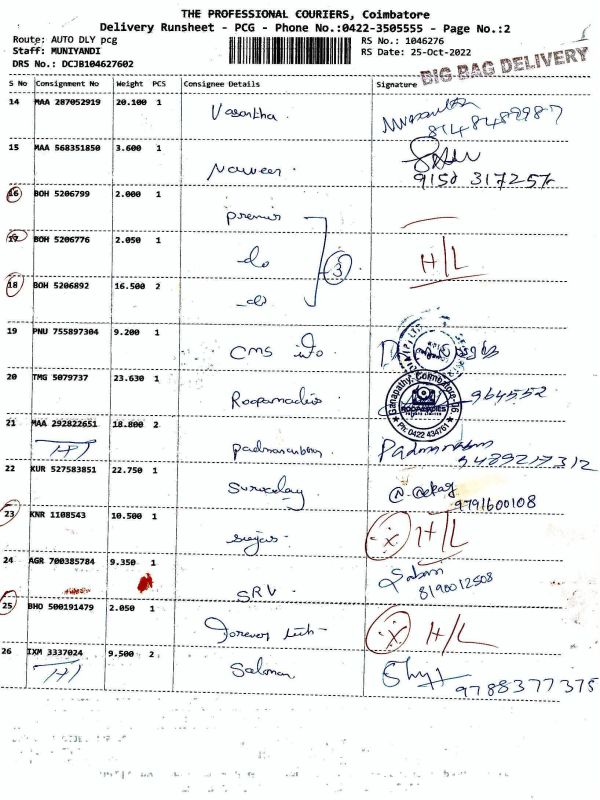 THE PROFESSIONAL COURIERS, Coimbatore
Delivery Runsheet - PCG - Phone No.:0422-3505555 - Page No.:2
Route: AUTO DLY pcg
Staff: MUNIYANDI
DRS No.: DCJB104627602
RS No.: 1046276
RS Date: 25-Oct-2022
BIG BAG DELIVERY
S No Consignment No Weight PCS Consignee Details Signature
14 MAA 287052919 20.100 1 Vasantha.
15 MAA 568351850 3.600 1 Naveen.
9150 317257
16 BOH 5206799 2.000 1 premier
17 BOH 5206776 2.050 1 do 3 H/L
18 BOH 5206892 16.500 2 do
19 PNU 755897304 9.200 1 CMS info
20 TMG 5079737 23.630 1 964552
Ganapathy, Coimbatore-06
ROOPAMADIES
21 MAA 292822651 18.800 2
9489217312
22 KUR 527583851 22.750 1
9791600108
23 KNR 1108543 10.500 1 x H/L
24 AGR 700385784 9.350 1 SRV.
8190012508
25 BHO 500191479 2.050 1 Forever x H/L
26 IXM 3337024 9.500 2 Salomon
9788377375